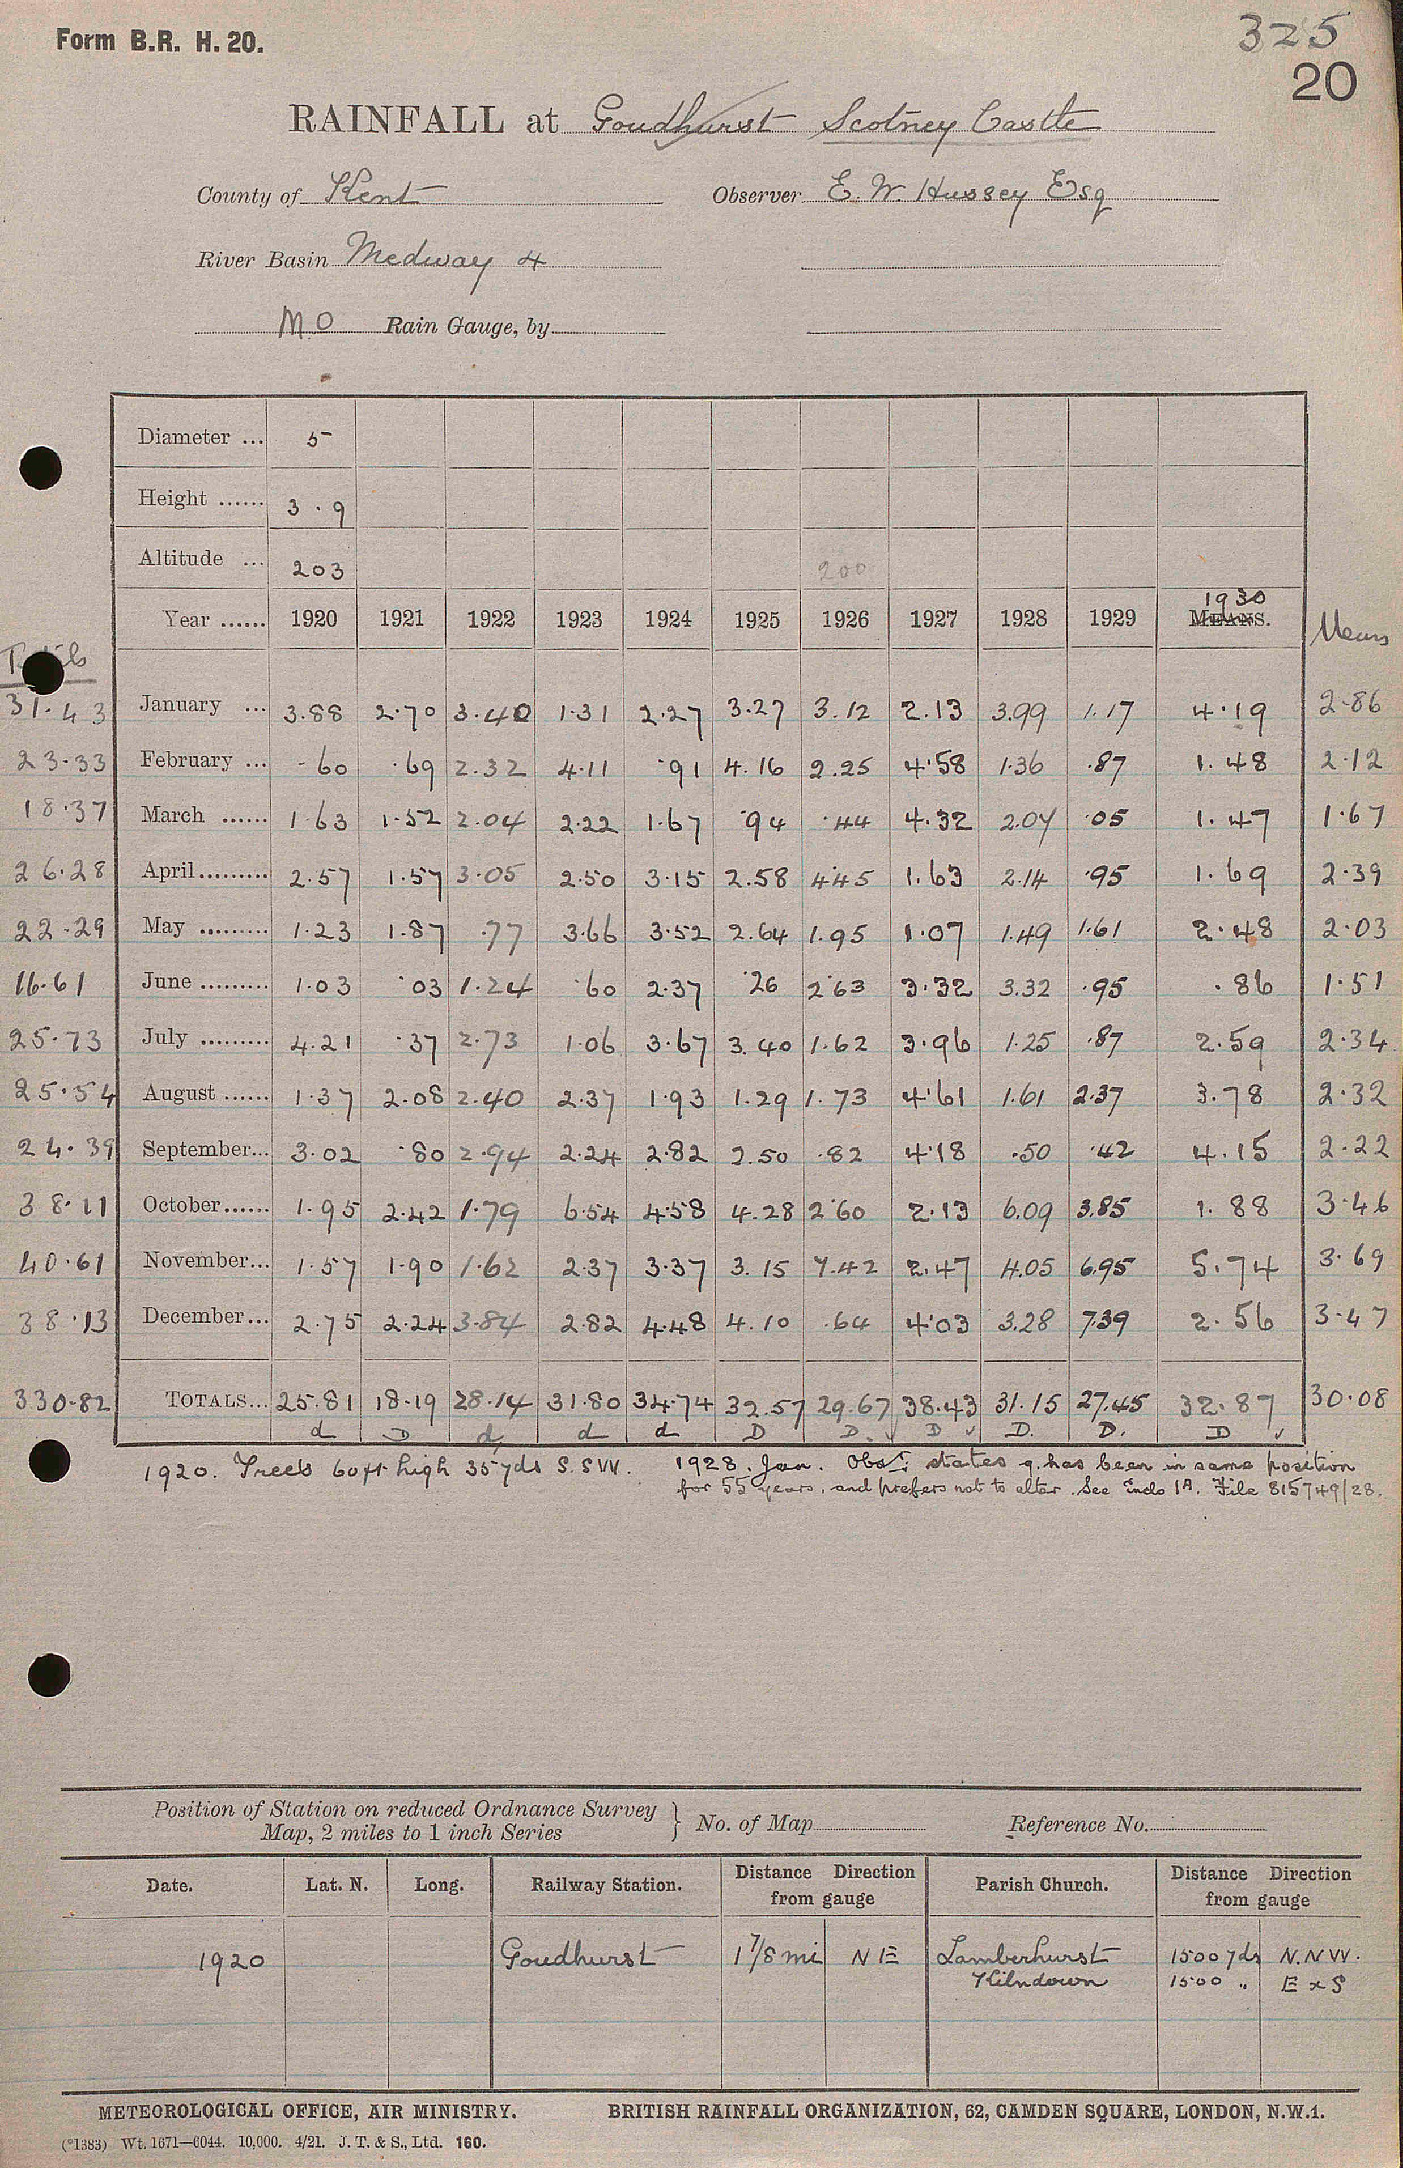 Form B.R. H. 20.
325
20
RAINFALL at Goudhurst Scotney Castle
County of Kent Observer E. W. Hussey Esq
River Basin Medway 4
M.O Rain Gauge, by
Diameter ... 5
Height ...... 3 . 9
Altitude ... 203 200
Year ...... 1920 1921 1922 1923 1924 1925 1926 1927 1928 1929 1930 MEANS. Means
31.43 January ... 3.88 2.70 3.40 1.31 2.27 3.27 3.12 2.13 3.99 1.17 4.19 2.86
23.33 February ... .60 .69 2.32 4.11 .91 4.16 2.25 4.58 1.36 .87 1.48 2.12
18.37 March ...... 1.63 1.52 2.04 2.22 1.67 .94 .44 4.32 2.07 .05 1.47 1.67
26.28 April......... 2.57 1.57 3.05 2.50 3.15 2.58 4.45 1.63 2.14 .95 1.69 2.39
22.29 May ......... 1.23 1.87 .77 3.66 3.52 2.64 1.95 1.07 1.49 1.61 2.48 2.03
16.61 June ......... 1.03 .03 1.24 .60 2.37 .26 2.63 3.32 3.32 .95 .86 1.51
25.73 July ......... 4.21 .37 2.73 1.06 3.67 3.40 1.62 3.96 1.25 .87 2.59 2.34
25.54 August ...... 1.37 2.08 2.40 2.37 1.93 1.29 1.73 4.61 1.61 2.37 3.78 2.32
24.39 September... 3.02 .80 2.94 2.24 2.82 2.50 .82 4.18 .50 .42 4.15 2.22
38.11 October...... 1.95 2.42 1.79 6.54 4.58 4.28 2.60 2.13 6.09 3.85 1.88 3.46
40.61 November... 1.57 1.90 1.62 2.37 3.37 3.15 7.42 2.47 4.05 6.95 5.74 3.69
38.13 December... 2.75 2.24 3.84 2.82 4.48 4.10 .64 4.03 3.28 7.39 2.56 3.47
330.82 TOTALS... 25.81 18.19 28.14 31.80 34.74 32.57 29.67 38.43 31.15 27.45 32.87 30.08
d D d d d D D. D D. D. D
1920. Trees 60ft high 35 yds S.SW. 1928. Jan. Obsr. states g. has been in same position
for 55 years, and prefers not to alter. See Enclo 1A. File 815749/28.
Position of Station on reduced Ordnance Survey
Map, 2 miles to 1 inch Series } No. of Map Reference No.
Date. Lat. N. Long. Railway Station. Distance Direction from gauge Parish Church. Distance Direction from gauge
1920 Goudhurst 1 7/8 mi NE Lamberhurst 1500 yds N.NW.
Kilndown 1500 " E x S
METEOROLOGICAL OFFICE, AIR MINISTRY. BRITISH RAINFALL ORGANIZATION, 62, CAMDEN SQUARE, LONDON, N.W.1.
(*1383) Wt. 1671—6044. 10,000. 4/21. J. T. & S., Ltd. 160.